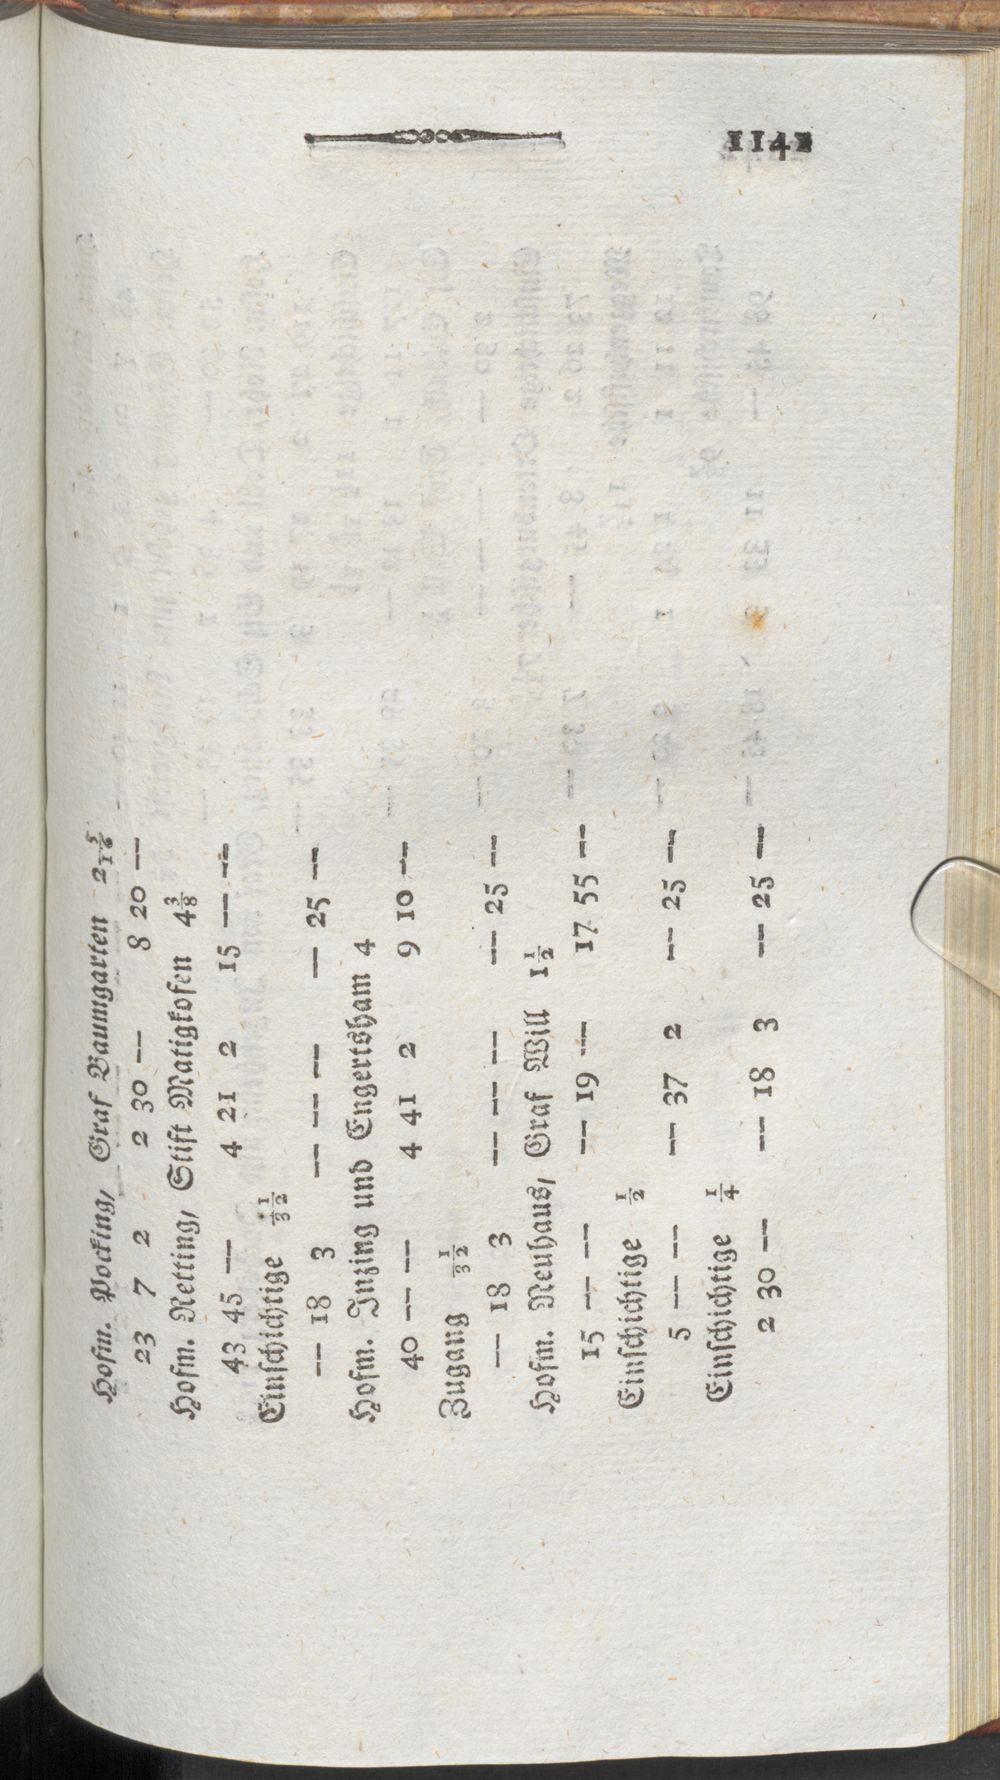 114
Hofm. Pocking, Graf Baumgarten 2 5/16
23 7 2 2 30 — 8 20 —
Hofm. Retting, Stift Matigkofen 4 3/8
43 45 — 4 21 2 15 — —
Einschichtige 1/32
— 18 3 — — — — 25 —
Hofm. Inzing und Engertsham 4
40 — — 4 41 2 9 10 —
Zugang 1/32
— 18 3 — — — — 25 —
Hofm. Neuhaus, Graf Will 1 1/2
15 — — — 19 — 17 55 —
Einschichtige 1/2
5 — — — 37 2 — 25 —
Einschichtige 1/4
2 30 — — 18 3 — 25 —